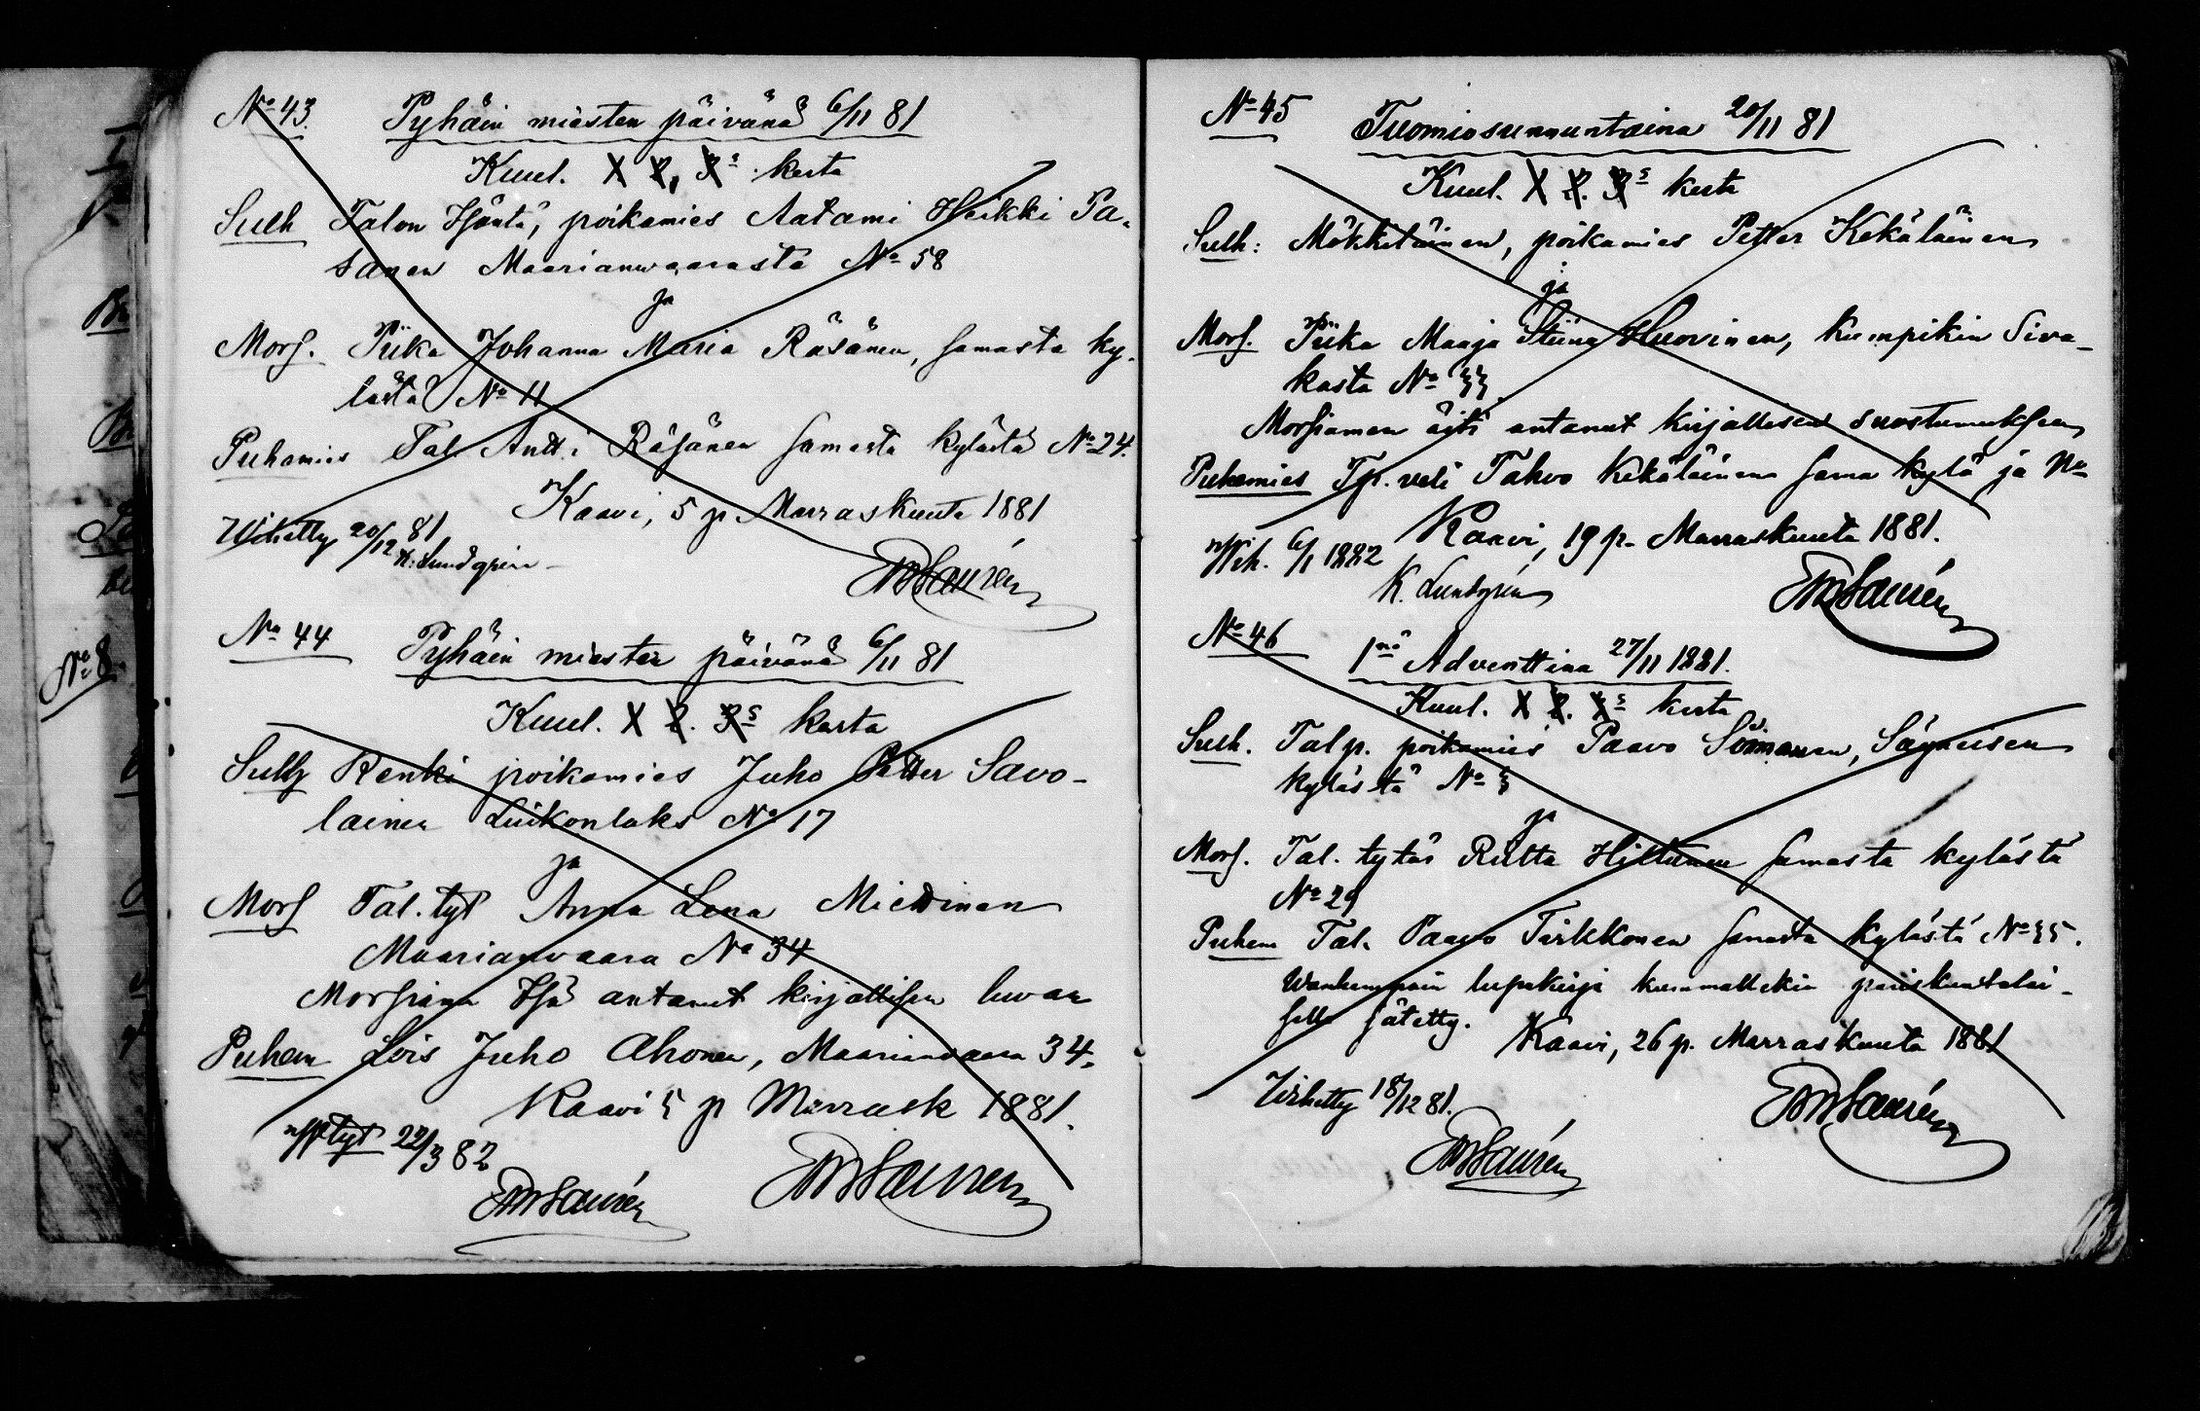 No 43. Pyhäin miesten päivänä 6/11 81
Kuul. X 2, 3s kerta
Sulh Talon Isäntä, poikamies Aatami Heikki Pa-
sanen Maarianwaarasta No 58
ja
Mors. Piika Johanna Maria Räsänen, samasta ky-
lästä No 11
Puhemies Tal Antti Räsänen samasta kylästä No 24.
Kaavi, 5 p Marraskuuta 1881
Wihitty 20/12 81
K. Lundgrén
EWLaurén
No 44 Pyhäin miesten päivänä 6/11 81
Kuul. X 2. 3s kerta
Sulh Renki poikamies Juho Petter Savo-
lainen Luikonlaks No 17
ja
Mors Tal. tyt Anna Lena Miettinen
Maarianvaara No 34
Morsiam Isä antanut kirjallisen luvan
Puhem Lois Juho Ahonen, Maarianvaara 34.
Kaavi 5 p Marrask 1881.
22/3 82
EWLaurén EWLaurén
No 45 Tuomiosunnuntaina 20/11 81
Kuul. X 2. 3s kerta
Sulh: Mökkiläinen, poikamies Petter Kekäläinen
ja
Mors. Piika Maaja Stiina Huovinen, kumpikin Siva-
kasta No
Morsiamen äiti antanut kirjallisen suostumuksen
Puhemies Tp. veli Tahvo Kekäläinen sama kylä ja No
Kaavi, 19 p. Marraskuuta 1881.
Wih. 6/1 1882
K. Lundgrén EWLaurén
No 46 1nä Adventtina 27/11 1881.
Kuul. X 2. 3s kerta
Sulh. Tal p. poikamies Paavo Soinanen, Säyneisen
kylästä No 5
ja
Mors. Tal. tytär Riitta Hiltunen samasta kylästä
No 29
Puhem Tal. Paavo Tirkkonen samasta kylästä No 35.
Wanhempain lupakirja kummallekin pariskuntalai-
selle jätetty.
Kaavi, 26 p. Marraskuuta 1881
Vihitty 18/12 81.
EWLaurén EWLaurén
No 8.